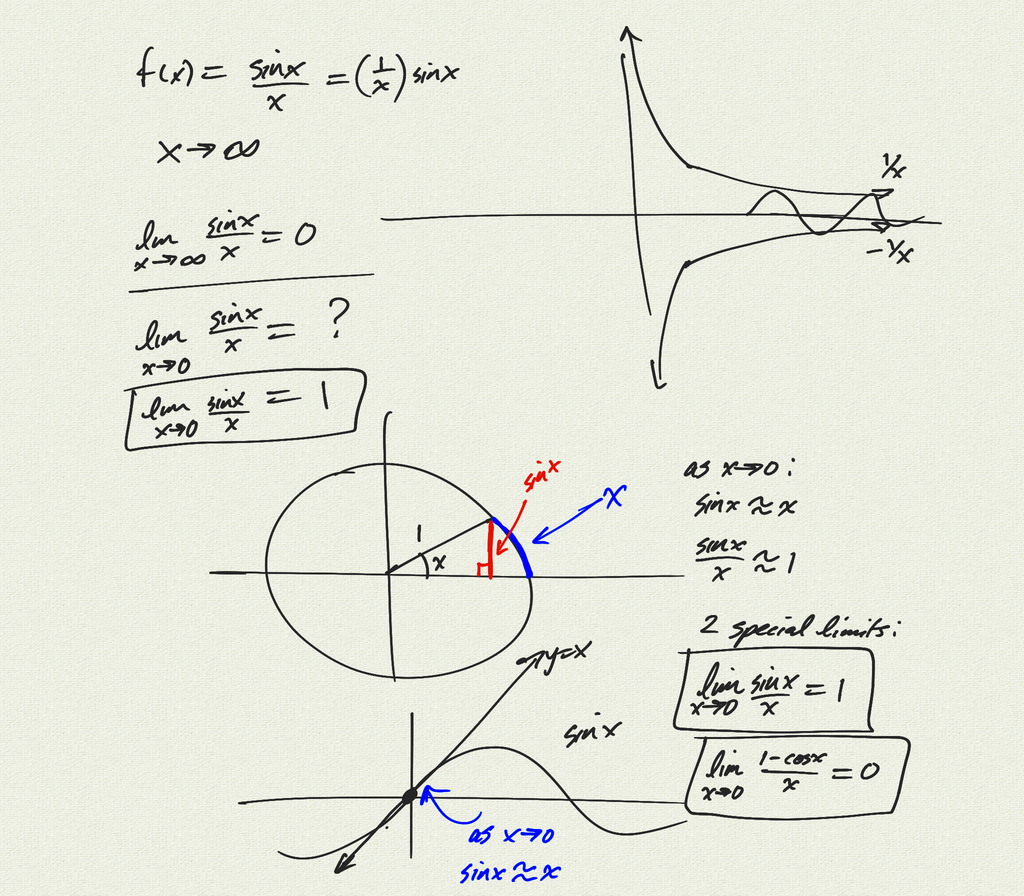 f(x) = sinx/x = (1/x) sinx
x → ∞
lim x→∞ sinx/x = 0
lim x→0 sinx/x = ?
lim x→0 sinx/x = 1
1/x
-1/x
sinx
x
1
x
as x→0:
sinx ≈ x
sinx/x ≈ 1
2 special limits:
lim x→0 sinx/x = 1
lim x→0 1-cosx/x = 0
y=x
sinx
as x→0
sinx ≈ x